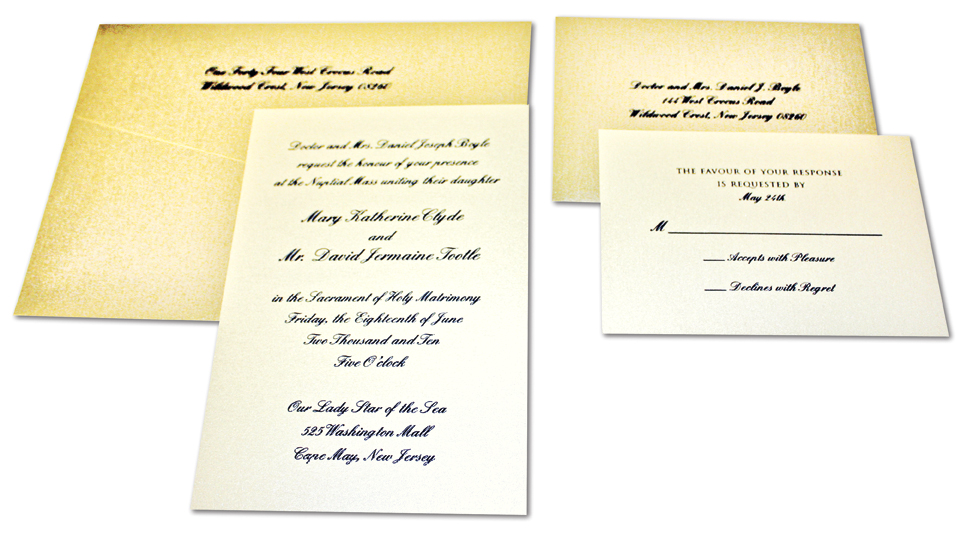 One Forty Four West Crocus Road
Wildwood Crest, New Jersey 08260
Doctor and Mrs. Daniel Joseph Boyle
request the honour of your presence
at the Nuptial Mass uniting their daughter
Mary Katherine Clyde
and
Mr. David Jermaine Tootle
in the Sacrament of Holy Matrimony
Friday, the Eighteenth of June
Two Thousand and Ten
Five O'clock
Our Lady Star of the Sea
525 Washington Mall
Cape May, New Jersey
Doctor and Mrs. Daniel J. Boyle
144 West Crocus Road
Wildwood Crest, New Jersey 08260
THE FAVOUR OF YOUR RESPONSE
IS REQUESTED BY
May 24th
M
Accepts with Pleasure
Declines with Regret